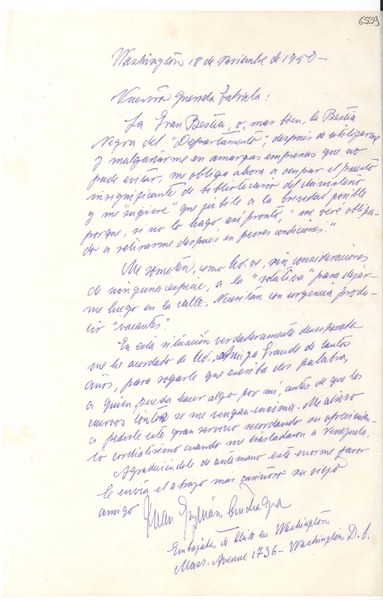 6559
Washington 18 de noviembre de 1950-
Nuestra querida Gabriela:
La Gran Bestia, o, mas bien, la Bestia
Negra del "Departamento", después de utilizarme
y malgastarme en amargas empresas que no
pude evitar, me obliga ahora a ocupar el puesto
insignificante de bibliotecario del
y me "sugiere" que jubile a la brevedad posible
porque, si no lo hago así pronto, "me veré obliga-
do a retirarme después en peores condiciones".
Me someten, como Ud. ve, sin consideraciones
de ninguna especie, a la "rotativa" para dejar-
me luego en la calle. Necesitan con urgencia produ-
cir "vacantes".
En esta situación verdaderamente desesperada
me he acordado de Ud., Amiga Grande de tantos
años, para rogarle que escriba dos palabras,
a quien pueda hacer algo por mí, antes de que los
se me vengan encima. Me atrevo
a pedirle este gran servicio recordando su
cordialísimo cuando me trasladaron a Venezuela.
Agradeciéndole de antemano este enorme favor
le envía el abrazo mas cariñoso su viejo
amigo Juan Guzmán Cruchaga
Embajada de Chile en Washington
Mass. Avenue 1736- Washington D.C.